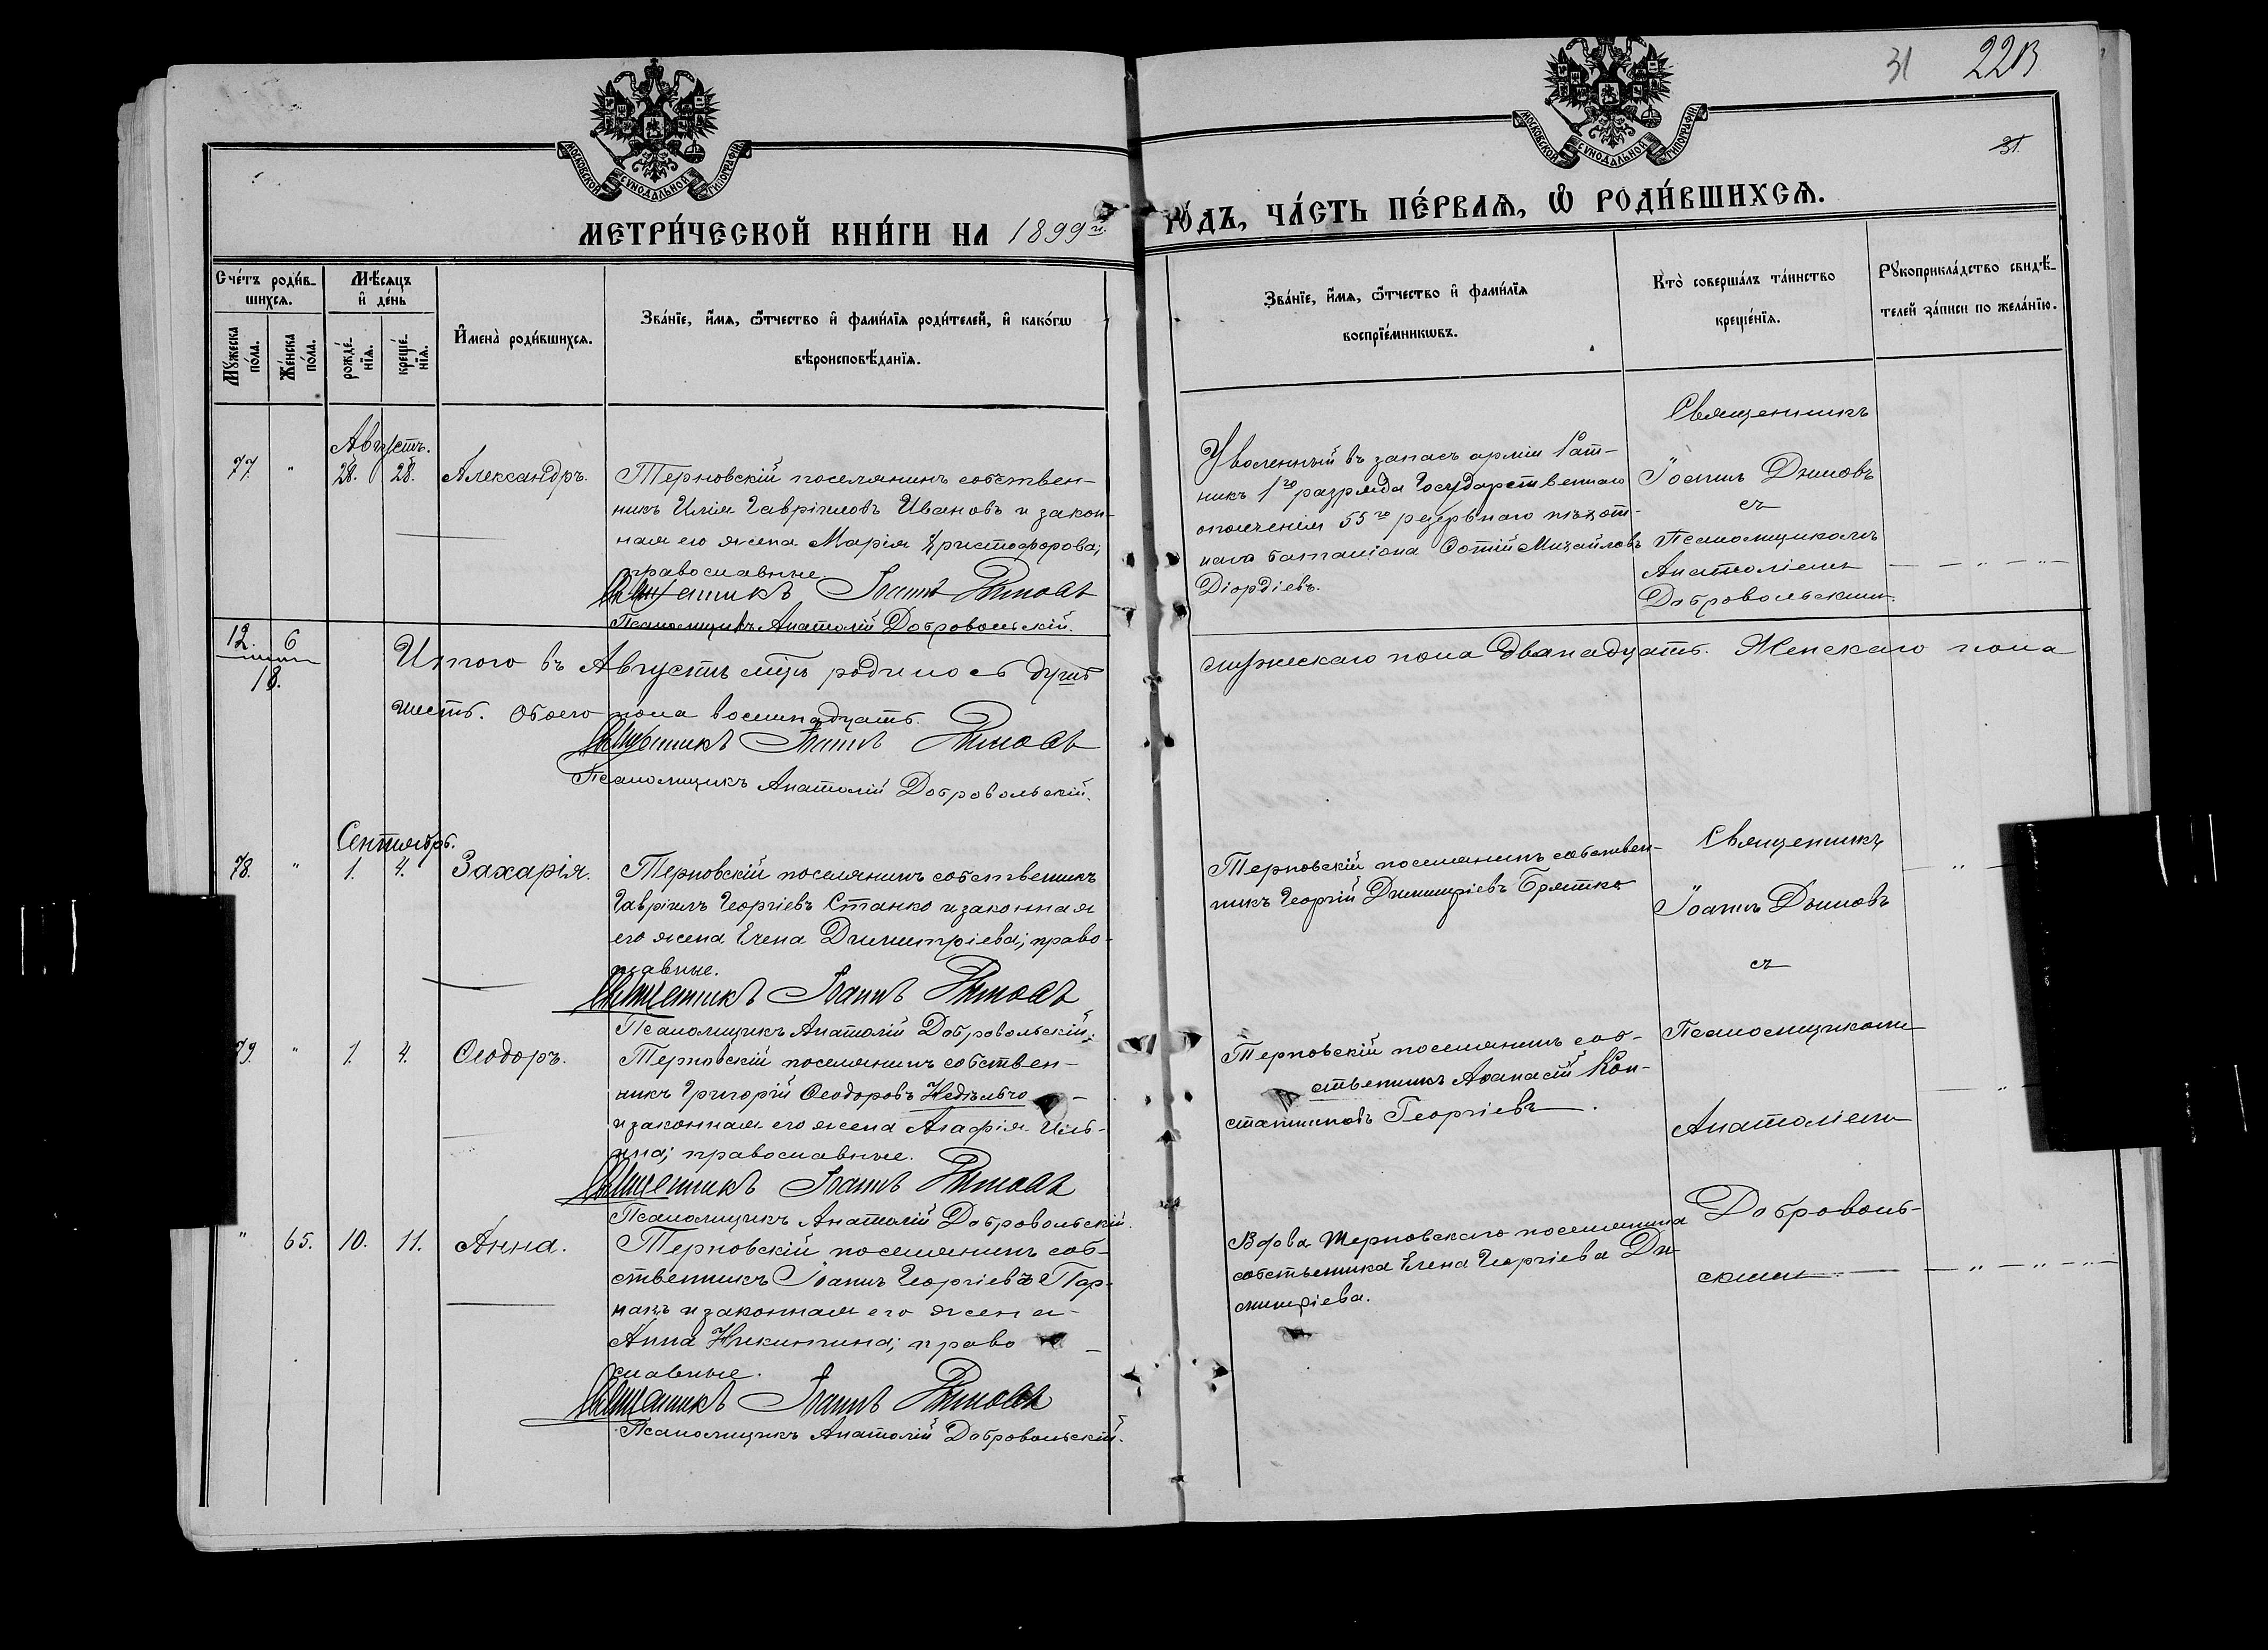 31 22В
31.
МОСКОВСКОЙ СѴНОДАЛЬНОЙ ТИПОГРАФІИ
МОСКОВСКОЙ СѴНОДАЛЬНОЙ ТИПОГРАФІИ
МЕТРИ́ЧЕСКОЙ КНИ́ГИ НА 1899 г.
ГО́ДЪ, ЧА́СТЬ ПЕ́РВАѦ, Ѿ РОДИ́ВШИХСѦ.
Сче́тъ роди́в-
шихсѧ.
Мꙋ́жеска по́ла.
Же́нска по́ла.
Мѣ́сѧцъ
и҆ де́нь
рожде́-
нїѧ.
креще́-
нїѧ.
И҆мена̀ роди́вшихсѧ.
Зва́нїе, и҆́мѧ, ѻ҆́тчество и҆ фами́лїѧ роди́телей, и҆ како́гѡ
вѣроисповѣ́данїѧ.
Зва́нїе, и҆́мѧ, ѻ҆́тчество и҆ фами́лїѧ
воспрїе́мникѡвъ.
Кто̀ соверша́лъ та́инство
креще́нїѧ.
Рꙋкоприкла́дство свидѣ́-
телей за́писи по жела́нїю.
Августъ.
77. " 28. 28. Александръ.
Терновскій поселянинъ собствен-
никъ Илія Гавріиловъ Ивановъ и закон-
ная его жена Марія Христофорова;
православные.
Священникъ Іоаннъ Дымовъ
Псаломщикъ Анатолій Добровольскій.
Уволенный въ запасъ арміи Рат-
никъ 1го разряда Государственнаго
ополченія 55го резервнаго пѣхот-
наго баталіона Фотій Михайловъ
Діордіевъ.
Священникъ
Іоаннъ Дымовъ
съ
Псаломщикомъ
Анатоліемъ
Добровольскимъ.
12. 6
18.
Итого въ Августѣ мцѣ родилось душъ мужескаго пола двѣнадцать. Женскаго пола
шесть. Обоего пола восемнадцать.
Священникъ Іоаннъ Дымовъ
Псаломщикъ Анатолій Добровольскій.
Сентябрь.
78. " 1. 4. Захарія.
Терновскій поселянинъ собственникъ
Гавріилъ Георгіевъ Станко и законная
его жена Елена Димитріева; право-
славные.
Священникъ Іоаннъ Дымовъ
Псаломщикъ Анатолій Добровольскій.
Терновскій поселянинъ собствен-
никъ Георгій Димитріевъ Братко
Священникъ
Іоаннъ Дымовъ
съ
79. " 1. 4. Ѳеодоръ.
Терновскій поселянинъ собствен-
никъ Григорій Ѳеодоровъ Недѣльчо
и законная его жена Агафія Иль-
ина; православные.
Священникъ Іоаннъ Дымовъ
Псаломщикъ Анатолій Добровольскій.
Терновскій поселянинъ соб-
ственникъ Аѳанасій Кон-
стантиновъ Георгіевъ.
Псаломщикомъ
Анатоліемъ
" 65. 10. 11. Анна.
Терновскій поселянинъ соб-
ственникъ Іоаннъ Георгіевъ
и законная его жена
Анна Никитина; право-
славные.
Священникъ Іоаннъ Дымовъ
Псаломщикъ Анатолій Добровольскій.
Вдова Терновскаго поселянина
собственника Елена Георгіева Ди-
митріева.
Доброволь-
скимъ